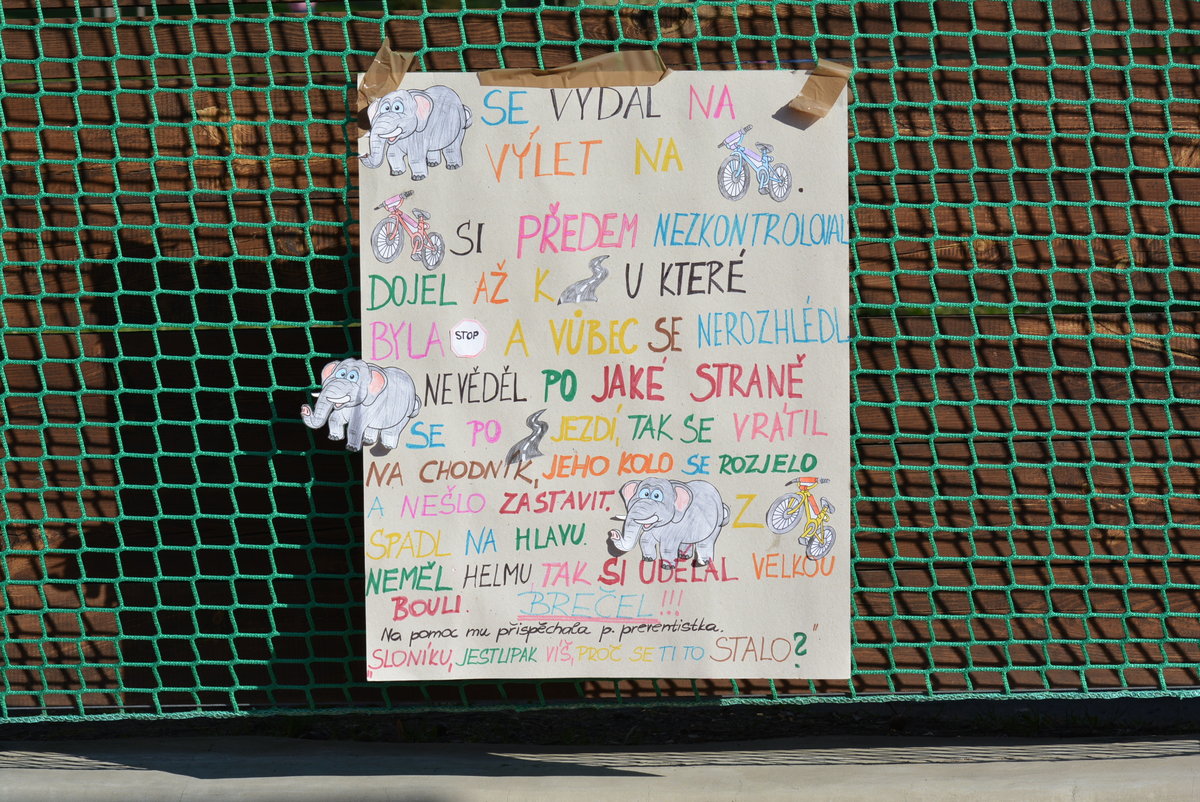 SE VYDAL NA
VÝLET NA .
SI PŘEDEM NEZKONTROLOVAL
DOJEL AŽ K U KTERÉ
BYLA STOP A VŮBEC SE NEROZHLÉDL
NEVĚDĚL PO JAKÉ STRANĚ
SE PO JEZDÍ, TAK SE VRÁTIL
NA CHODNÍK, JEHO KOLO SE ROZJELO
A NEŠLO ZASTAVIT. Z
SPADL NA HLAVU.
NEMĚL HELMU, TAK SI UDĚLAL VELKOU
BOULI. BREČEL!!!
Na pomoc mu přispěchala p. preventistka.
"SLONÍKU, JESTLIPAK VÍŠ, PROČ SE TI TO STALO?"